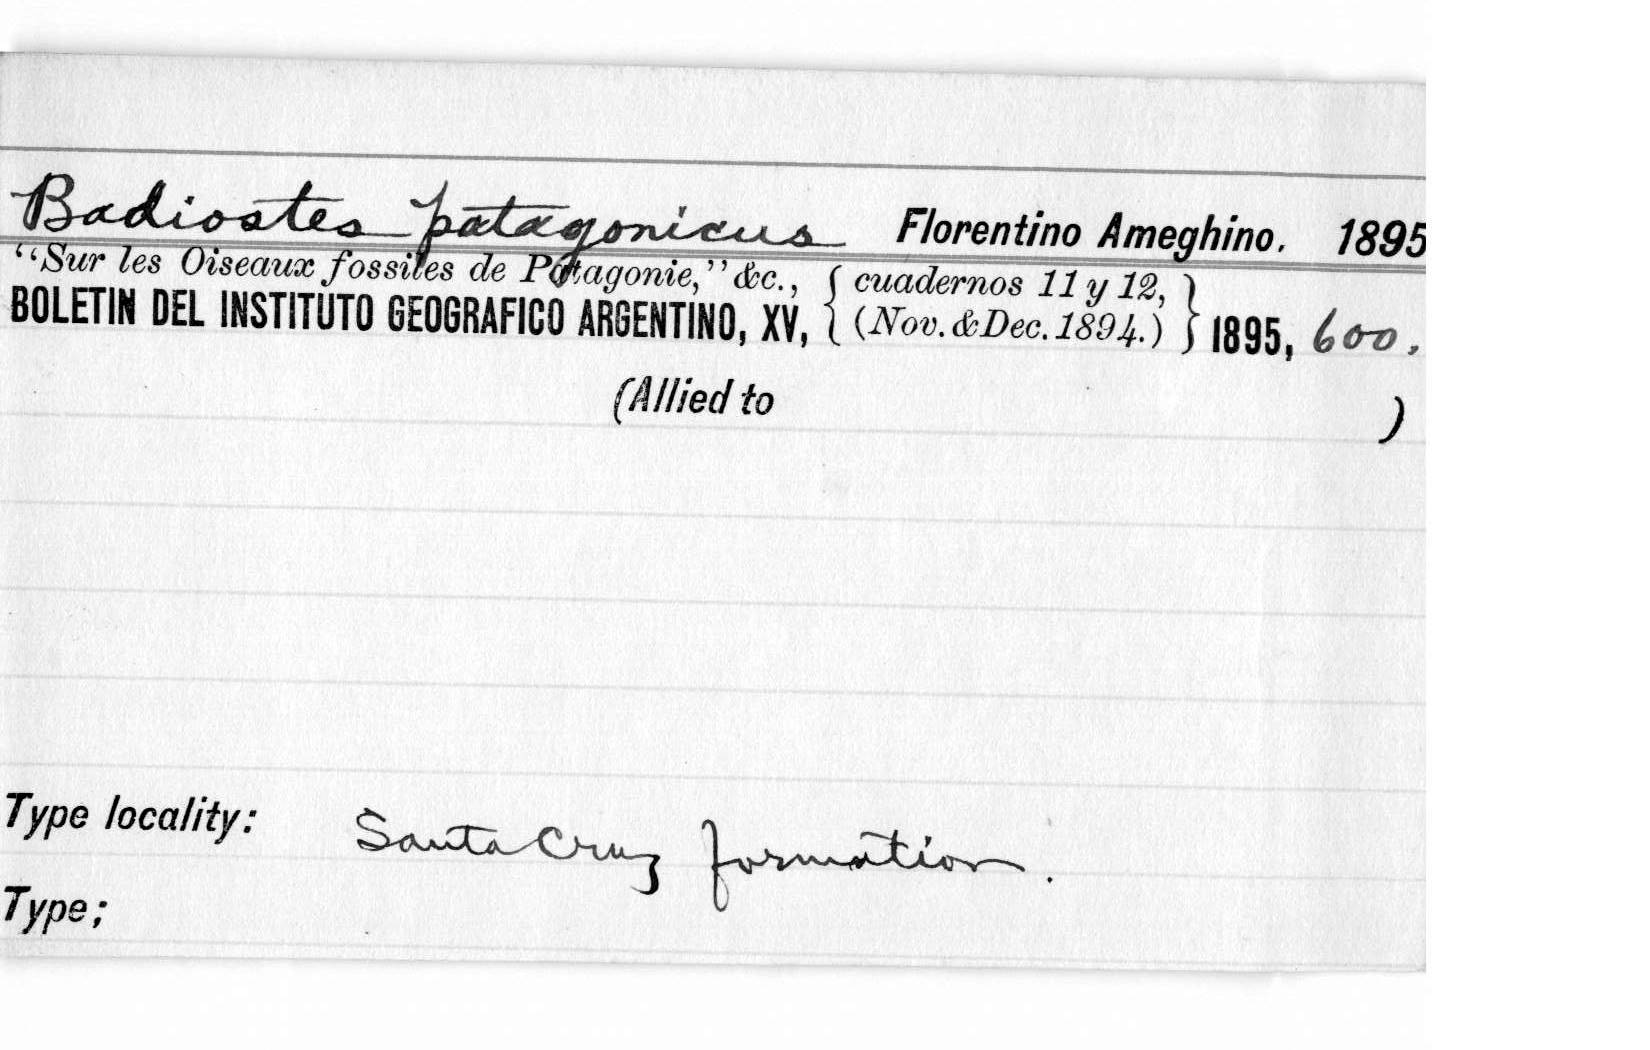 Badiostes patagonicus Florentino Ameghino. 1895
“Sur les Oiseaux fossiles de Patagonie,” &c., { cuadernos 11 y 12, }
BOLETIN DEL INSTITUTO GEOGRAFICO ARGENTINO, XV, { (Nov. & Dec. 1894.) } 1895, 600.
(Allied to )
Type locality: Santa Cruz formation.
Type;